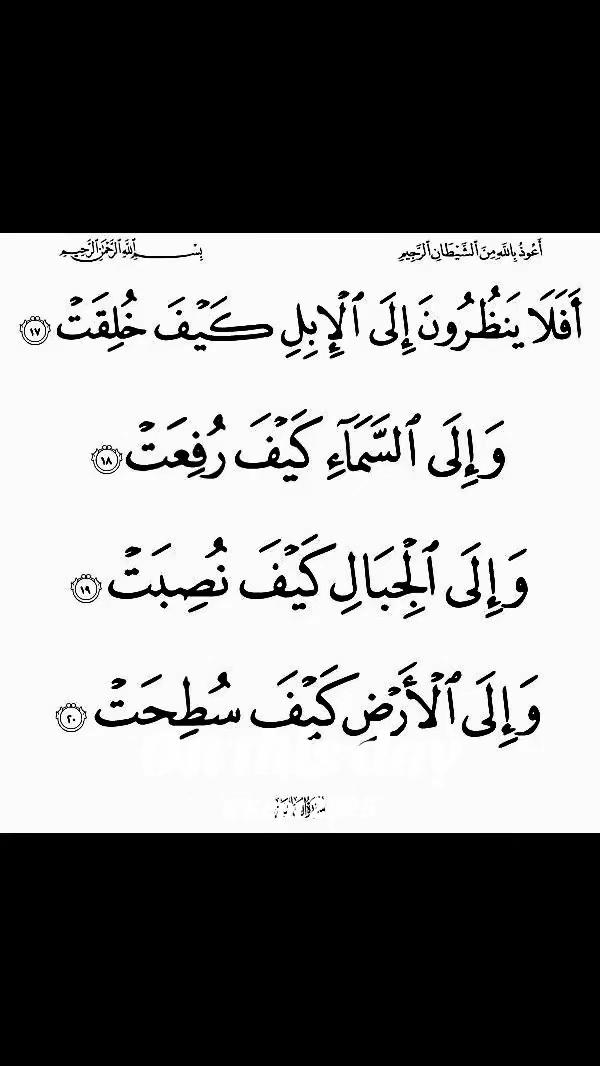 أَعُوذُ بِاللَّهِ مِنَ الشَّيْطَانِ الرَّجِيمِ بِسْمِ اللَّهِ الرَّحْمَٰنِ الرَّحِيمِ
أَفَلَا يَنظُرُونَ إِلَى ٱلْإِبِلِ كَيْفَ خُلِقَتْ ١٧
وَإِلَى ٱلسَّمَآءِ كَيْفَ رُفِعَتْ ١٨
وَإِلَى ٱلْجِبَالِ كَيْفَ نُصِبَتْ ١٩
وَإِلَى ٱلْأَرْضِ كَيْفَ سُطِحَتْ ٢٠